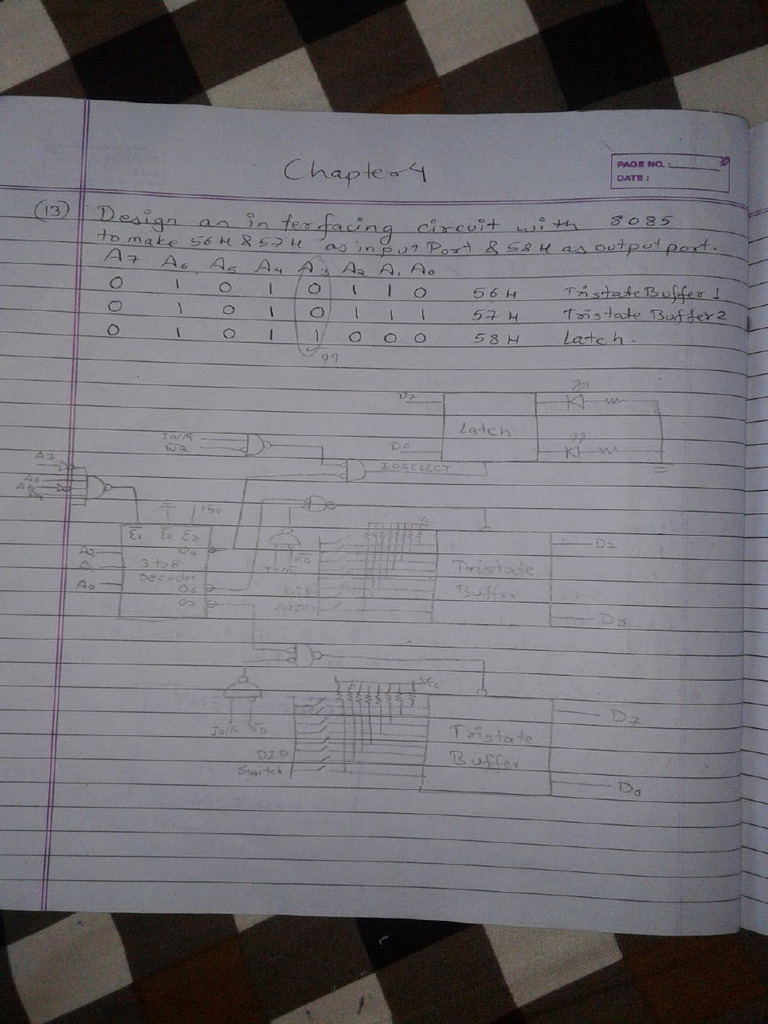 Chapter 4
PAGE NO.:
DATE:
(13) Design an interfacing circuit with 8085
to make 56H & 57H as input Port & 58H as output port.
A7 A6 A5 A4 A3 A2 A1 A0
0 1 0 1 0 1 1 0 56H Tristate Buffer 1
0 1 0 1 0 1 1 1 57H Tristate Buffer 2
0 1 0 1 1 0 0 0 58H Latch.
D7
Latch
D0
IO/M
WR
IOSELECT
+5V
E1 E2 E3
A2
A1
A0
3 to 8
Decoder
O0
RD
Vcc
DIP
Switch
Tristate
Buffer
D7
D0
IO/M RD
Vcc
DIP
Switch
Tristate
Buffer
D7
D0